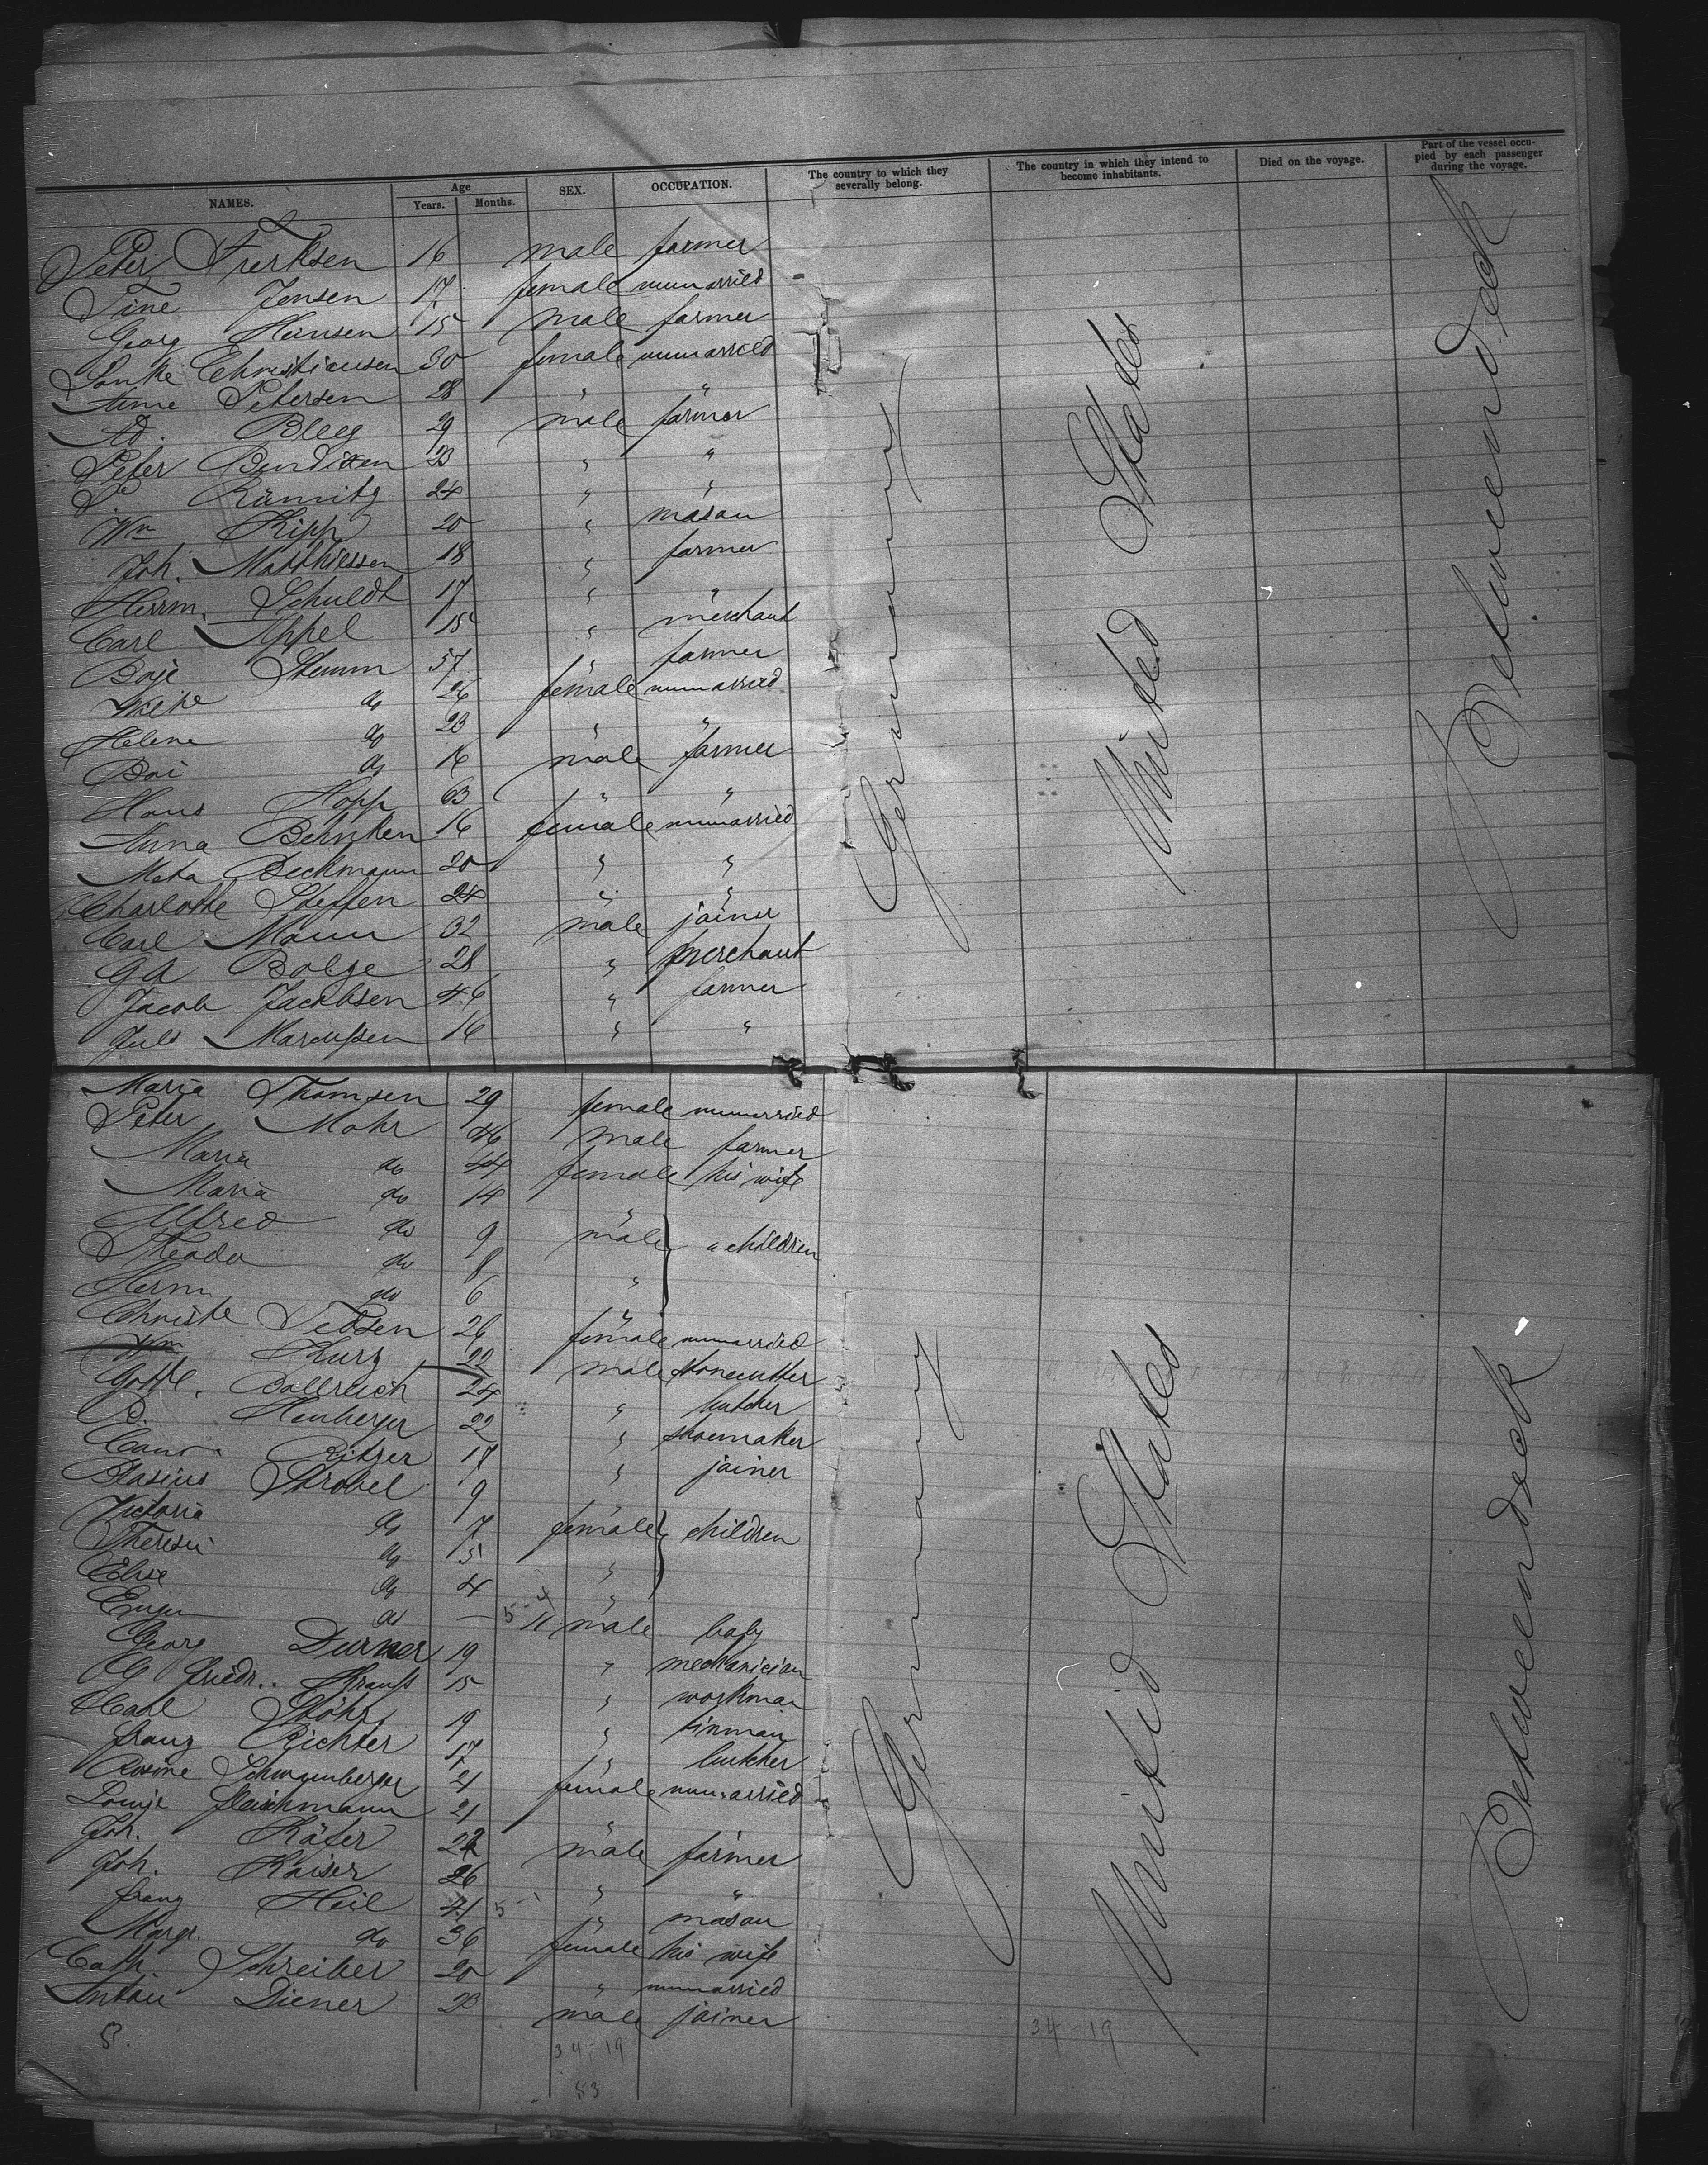 NAMES. Age Years. Months. SEX. OCCUPATION. The country to which they severally belong. The country in which they intend to become inhabitants. Died on the voyage. Part of the vessel occupied by each passenger during the voyage.
Peter Frerksen 16 male farmer
Tine Jensen 17 female unmarried
Georg Hansen 15 male farmer
Christiansen 30 female unmarried
Anne Petersen 28 " "
Ad. Bleeg 29 male farmer
Peter Bendixen 23 " "
P. 24 " "
Wm Kipp 20 " mason
Joh. Matthiessen 18 " farmer
Herrm. Schuldt 17 " "
Carl Appel 15 " merchant
Boje Stumm 57 " farmer
Wiebe do 26 female unmarried
Helene do 23 " "
Boi do 16 male farmer
Hans Hopp 63 " "
Anna Behnken 16 female unmarried
Meta Beckmann 20 " "
Charlotte Steffen 24 " "
Carl Mann 32 male joiner
GA Bolge 28 " merchant
Jacob Jacobsen 46 " farmer
Juls Marcussen 16 " "
Germany
United States
Betweendeck
Maria Thomsen 29 female unmarried
Peter Mohr 46 male farmer
Maria do 44 female his wife
Maria do 14 "
Alfred do 9 male children
Theodor do 8 "
Herm do 6 "
Christe Tebsen 26 female unmarried
Wm Kurz 22 male stonecutter
Gottl. Bollreich 24 " butcher
B. Heuberger 22 " shoemaker
Ritzer 17 " joiner
Blasius Strobel 9 "
Victoria do 7 female children
Theresii do 5 "
Elise do 4 "
Eugen do — 11 male baby
Georg Durner 19 " mechanician
G Friedr. Krauss 15 " workman
Carl Stöhr 19 " tinman
Franz Richter 17 " butcher
Rosine Schwanberger 21 female unmarried
Louise Fleischmann 21 " "
Joh. Käfer 22 male farmer
Joh. Kaiser 26 " "
Franz Heil 41 " mason
Margr. do 36 female his wife
Cath. Schreiber 20 " unmarried
Anton Diener 23 male joiner
Germany
United States
Betweendeck
34-19
34-19
53